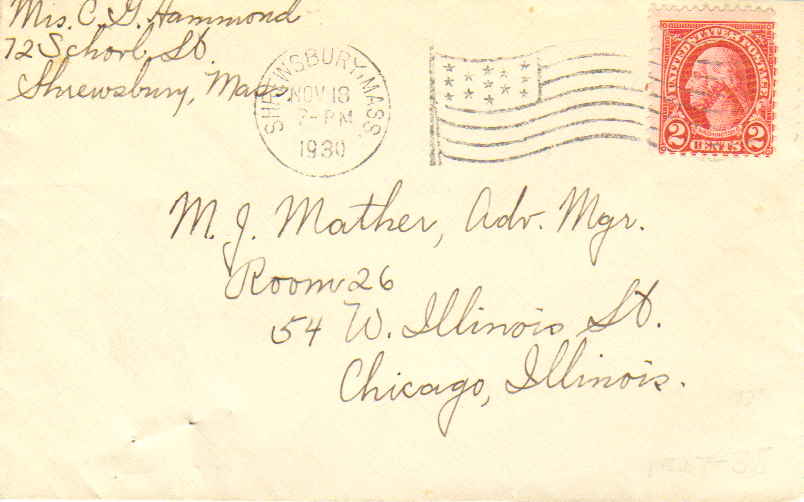 Mrs. C. G. Hammond
72 School St.
Shrewsbury, Mass.
SHREWSBURY, MASS.
NOV 18
7-PM
1930
UNITED STATES POSTAGE
WASHINGTON
2 CENTS 2
M. J. Mather, Adv. Mgr.
Room 26
54 W. Illinois St.
Chicago, Illinois.